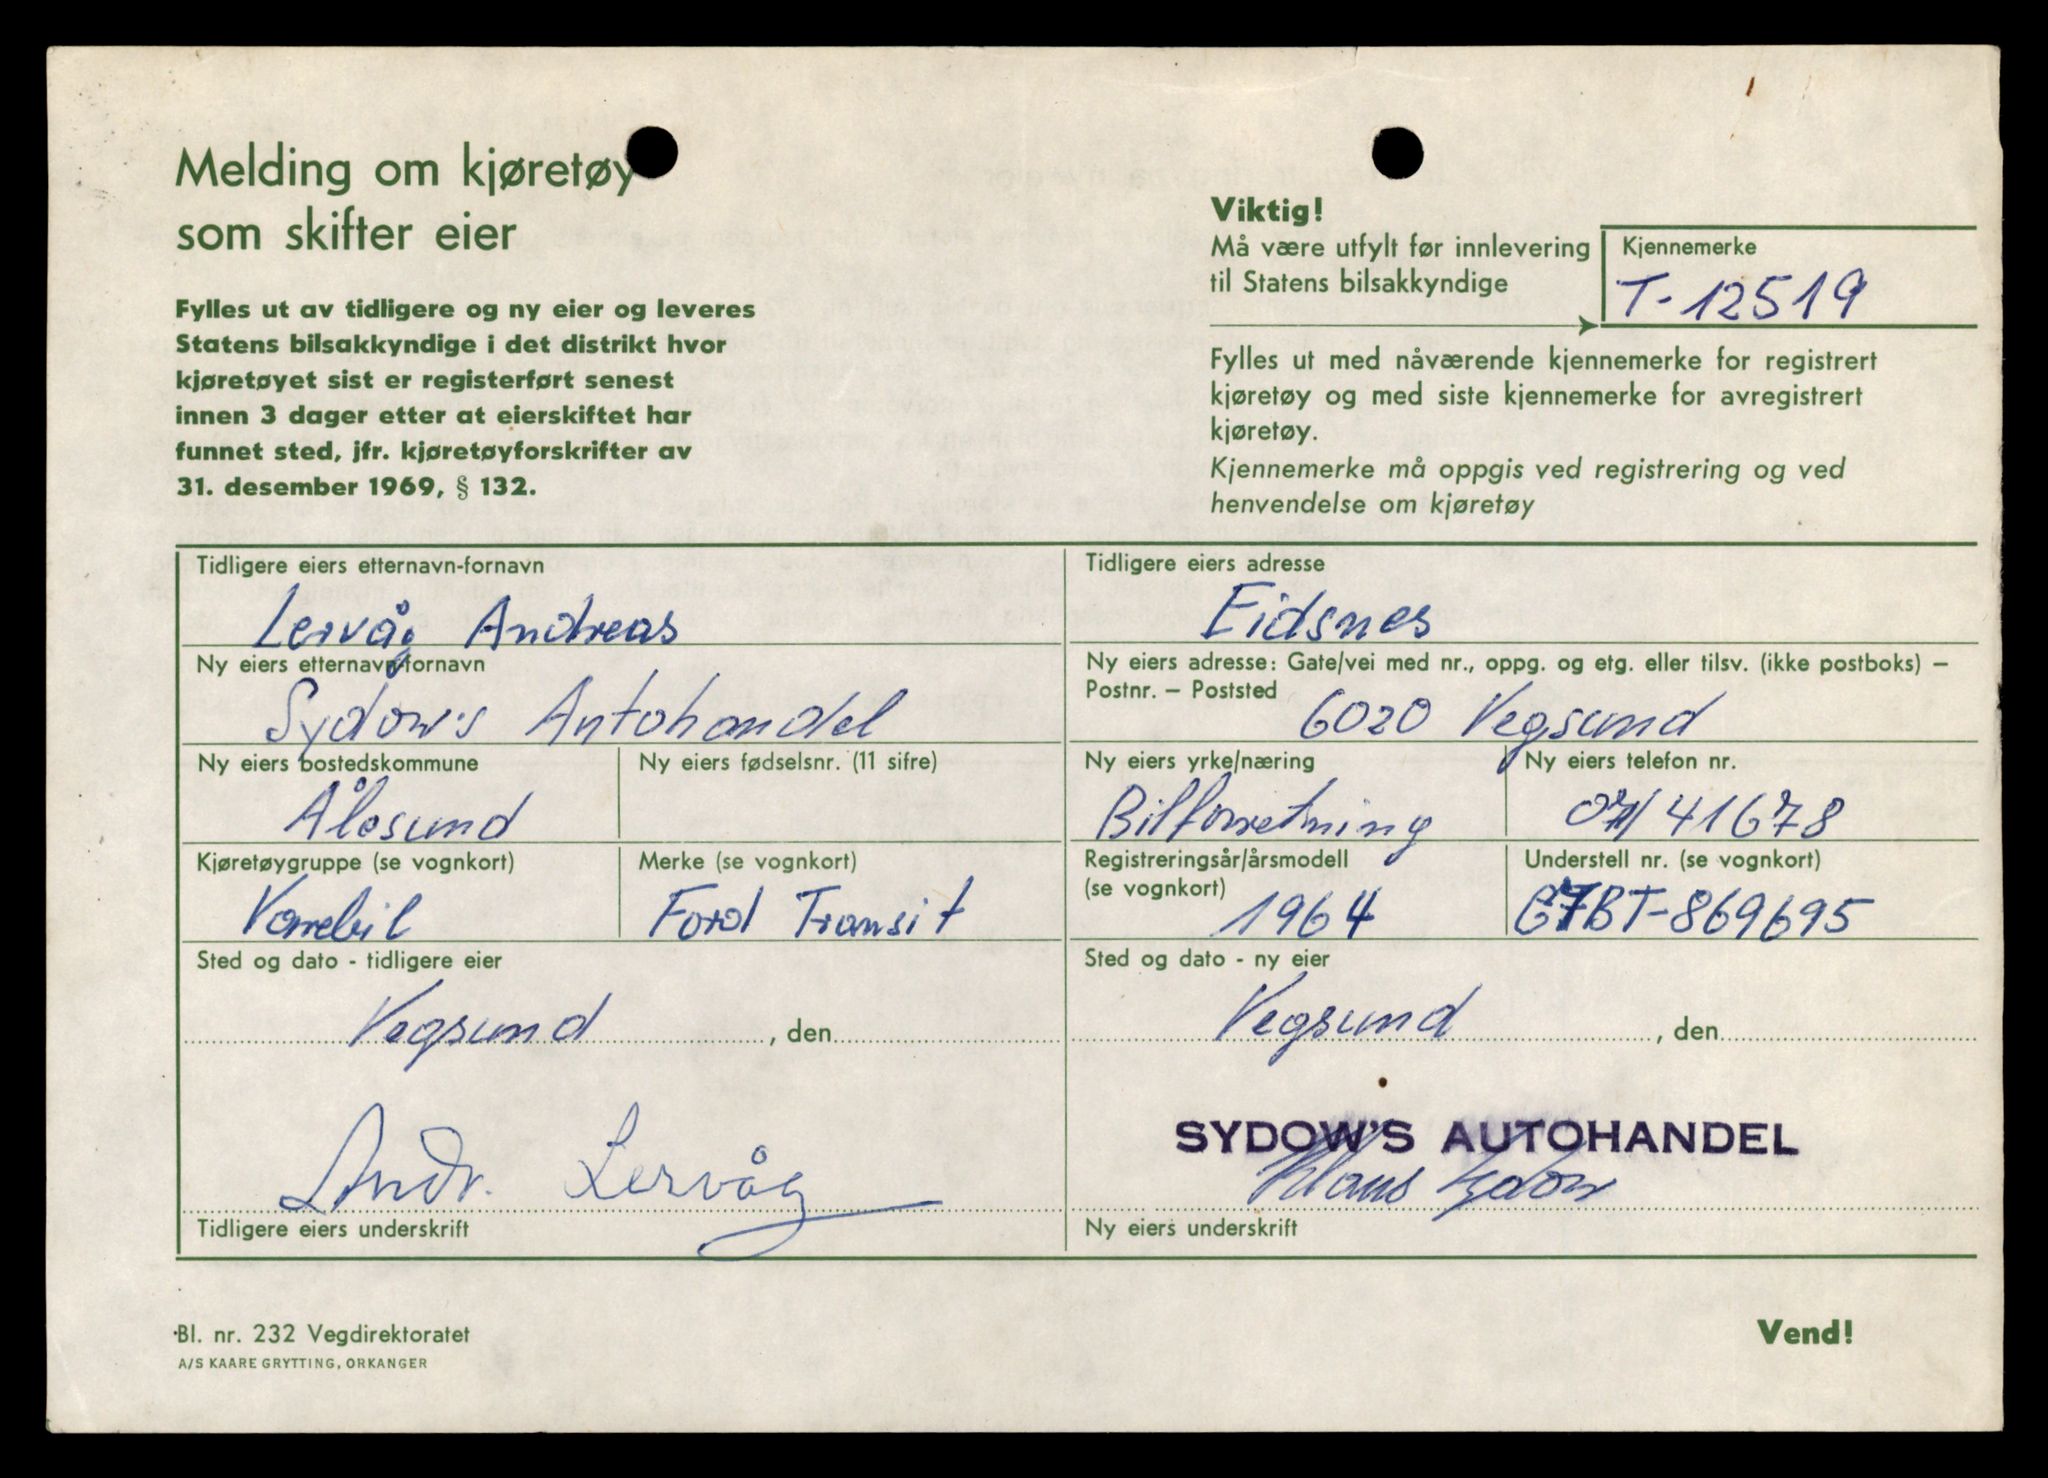 Melding om kjøretøy
som skifter eier
Fylles ut av tidligere og ny eier og leveres
Statens bilsakkyndige i det distrikt hvor
kjøretøyet sist er registerført senest
innen 3 dager etter at eierskiftet har
funnet sted, jfr. kjøretøyforskrifter av
31. desember 1969, § 132.
Viktig!
Må være utfylt før innlevering
til Statens bilsakkyndige
Kjennemerke
T-12519
Fylles ut med nåværende kjennemerke for registrert
kjøretøy og med siste kjennemerke for avregistrert
kjøretøy.
Kjennemerke må oppgis ved registrering og ved
henvendelse om kjøretøy
Tidligere eiers etternavn-fornavn
Lervåg Andreas
Tidligere eiers adresse
Eidsnes
Ny eiers etternavn-fornavn
Sydow's Autohandel
Ny eiers adresse: Gate/vei med nr., oppg. og etg. eller tilsv. (ikke postboks) –
Postnr. – Poststed
6020 Vegsund
Ny eiers bostedskommune
Ålesund
Ny eiers fødselsnr. (11 sifre)
Ny eiers yrke/næring
Bilforretning
Ny eiers telefon nr.
071/41678
Kjøretøygruppe (se vognkort)
Varebil
Merke (se vognkort)
Ford Transit
Registreringsår/årsmodell
(se vognkort)
1964
Understell nr. (se vognkort)
G7BT-869695
Sted og dato - tidligere eier
Vegsund, den
Sted og dato - ny eier
Vegsund, den
Andr. Lervåg
Tidligere eiers underskrift
SYDOW'S AUTOHANDEL
Klaus Sydow
Ny eiers underskrift
Bl. nr. 232 Vegdirektoratet
A/S KAARE GRYTTING, ORKANGER
Vend!